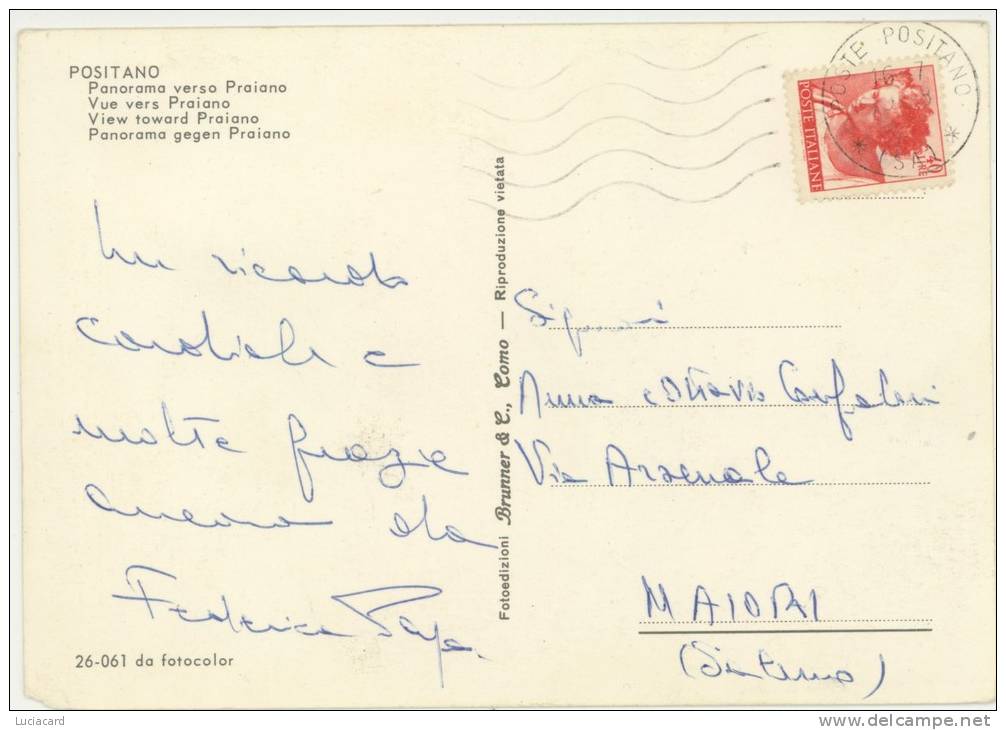 POSITANO
Panorama verso Praiano
Vue vers Praiano
View toward Praiano
Panorama gegen Praiano
Un ricordo
cordiale e
molte grazie
ancora da
Federica
26-061 da fotocolor
Fotoedizioni Brunner & C., Como — Riproduzione vietata
POSTE POSITANO
16 7
* (SA) *
POSTE ITALIANE
LIRE 40
Signori
Anna e Ottavio
Via Arsenale
MAIORI
(Salerno)
Luciacard
delcampe.net